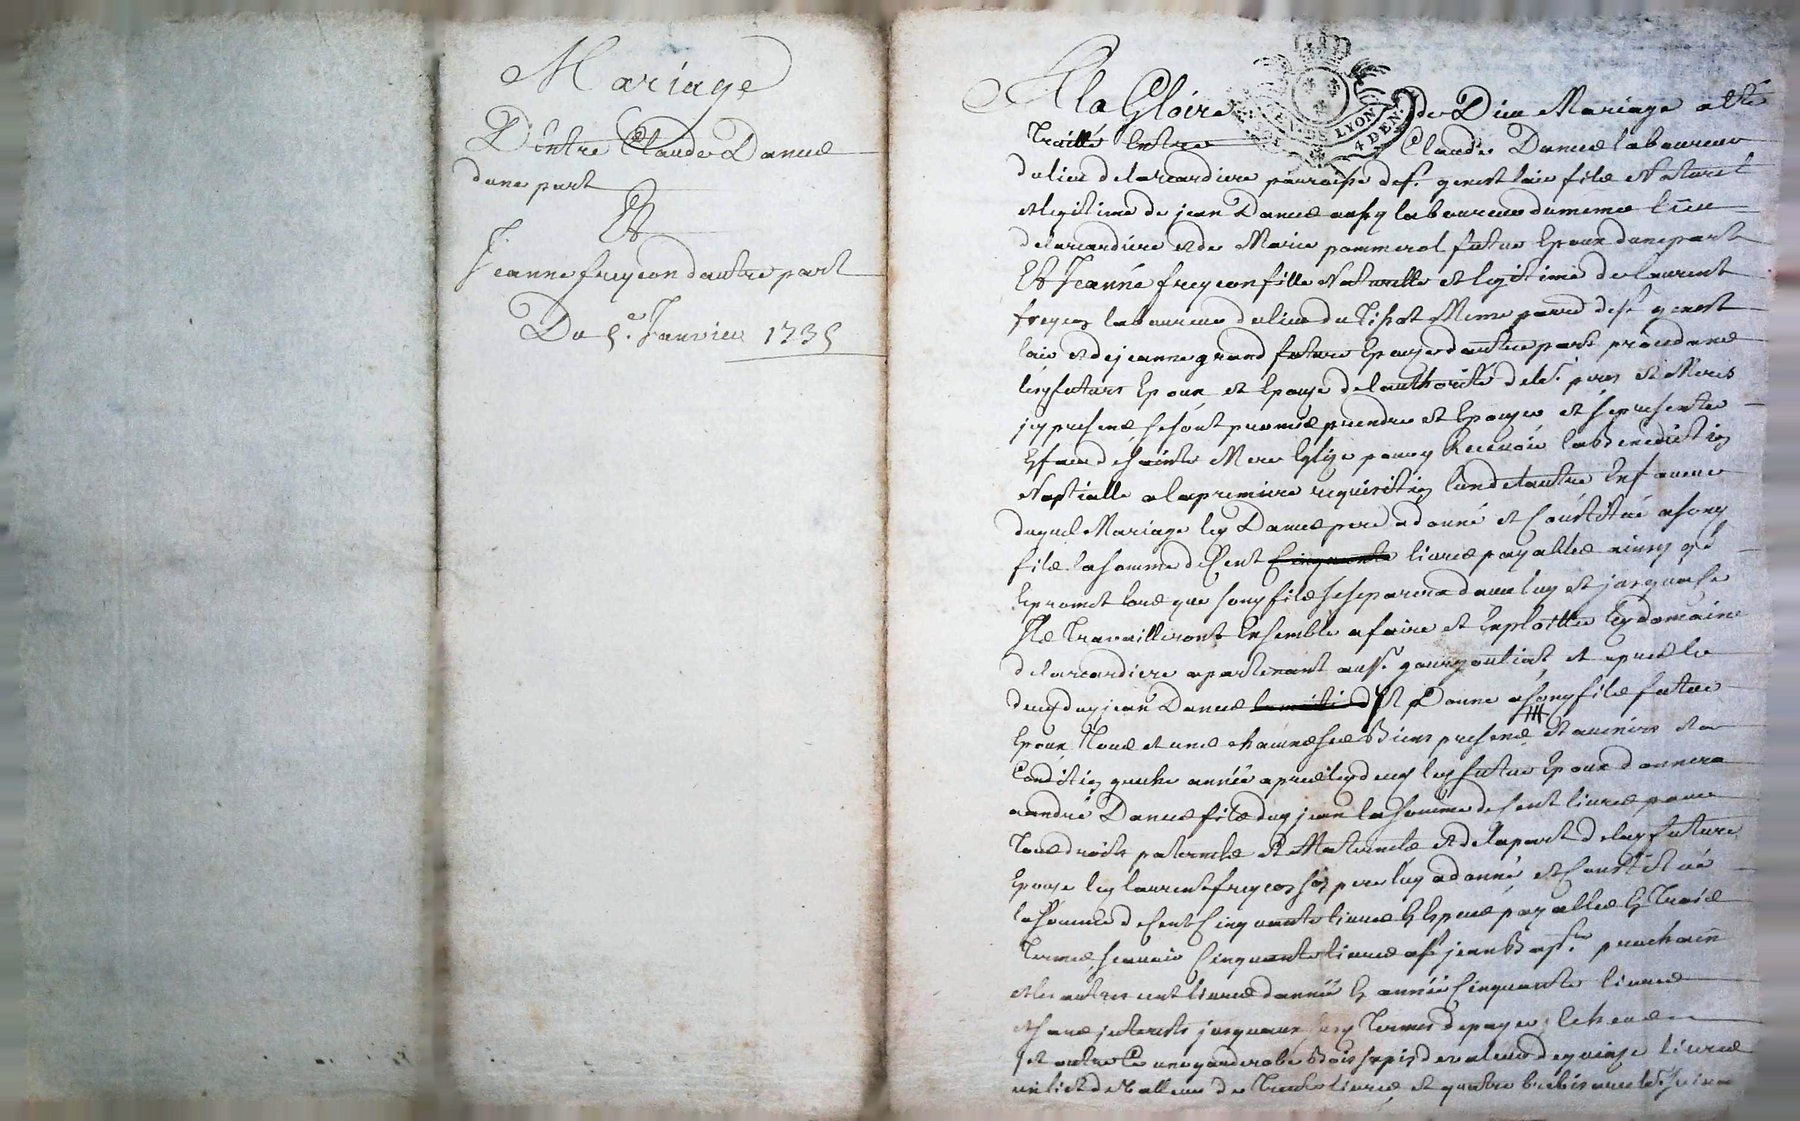 Mariage
D'Entre Claude Dancé
dune part
Et
Jeanne freycon dautre part
Du 5e. Janvier 1735
A la Gloire de Dieu Mariage a été
LYON
4 DEN.
Traitté Entre Claude Dancé laboureur
du lieu de larcardiere parroisse de St. genest laic filz Naturel
et legitime de jean Dancé aussy laboureur du meme lieu
delarcardiere et de Marie pommerol futur Epoux dunepart
Et Jeanne freycon fille Naturelle et legitime de laurent
freycon laboureur du lieu du Tissot Meme parre de St genest
laic et de jeanne grand future Epouse dautre part procedans
lesd futurs Epoux et Epouse de lauthorité de leurs peres et Meres
icy presens se sont promis prendre et Epouser et se presenter
En face de sainte Mere Eglise pour y Recevoir la Benediction
Nuptialle a la premiere requisition lun de lautre En faveur
duquel Mariage led Dancé pere a donné et Constitué a sond
filz la somme de Cent Cinquante livres payables ainsy qu
Epromet lors que sond filz se separera davec luy et jusqu a ce
Ilz Travailleront Ensemble a faire et Exploitter led domaine
delarcardiere apartenant au Sr. et apres le
deces dud jean Dancé Donne a sond filz futur
Epoux Tous et uns chacuns ses Biens presens et avenirs et a
Condition qu une année apres led deces led futur Epoux donnera
a andré Dancé filz dud jean la somme de Cent livres pour
Tous droits paternels et Maternels et de la part de lad future
Epouse led laurent freycon son pere luy a donné et Constitué
la somme de Cent Cinquante livres En Especes payables En Trois
Termes scavoir Cinquante livres a St jean Bapte. prochain
et les autres cent livres dannée En année Cinquante livres
et sans interests jusquaux Termes de payer Echeus
et outre Ce une garderobe Bois sapin de valeur de quinze livres
un lict de valleur de Trente livres et quatre brebis avec leur